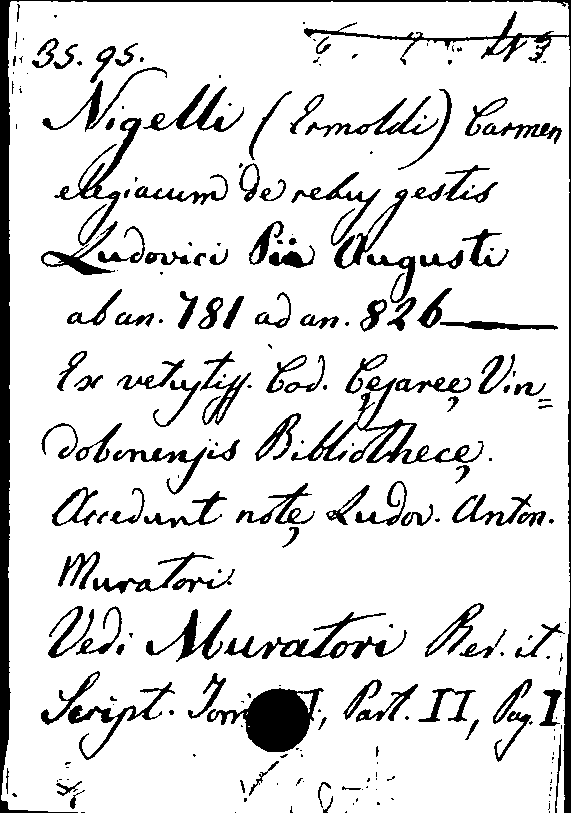 35. 95.
Nigelli (Ermoldi) Carmen
elegiacum de rebus gestis
Ludovici Pii Augusti
ab an. 781 ad an. 826
Ex vetustiss. Cod. Cęsareę Vin=
dobonensis Bibliothecę.
Accedunt notę Ludov. Anton.
Muratori.
Vedi Muratori Rer. it.
Script. Tom I, Part. II, Pag. I